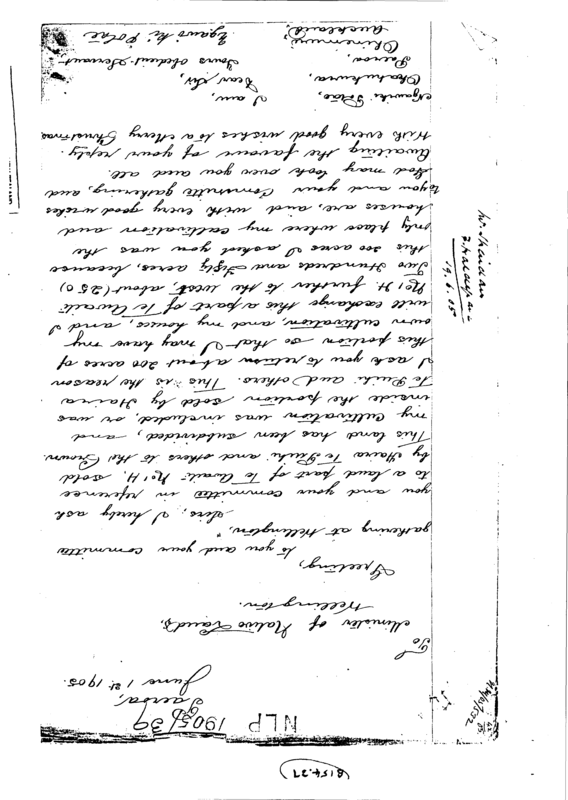 NLP 1905/39
Paeroa,
June 12th 1905.
To
Minister of Native Lands,
Wellington.
Greeting,
to you and your committee
gathering at Wellington,
Sirs, I hereby ask
you and your committee in reference
to a land part of Te Awaiti No 1 H, sold
by Haira Te Piiki and others to the Crown.
This land has been subdivided, and
my cultivation was included, or was
inside the portion sold by Haira
Te Piiki and others. This is the reason
I ask you to return about 200 acres of
this portion so that I may have my
own cultivation, and my houses, and I
will exchange this a part of Te Awaiti
No 1 H. further to the west, about (250)
Two Hundreds and Fifty acres, because
this 200 acres I asked you was the
only place where my cultivation and
houses are, and with every good wishes
to you and your Committee gathering, and
God may look over you and all.
Awaiting the favour of your reply.
With every good wishes to a Merry Christmas
I am,
Dear Sir,
Yours obedient Servant
Ngawiki Potae,
Paeroa,
Ohinemuri,
Auckland.
19.6.05